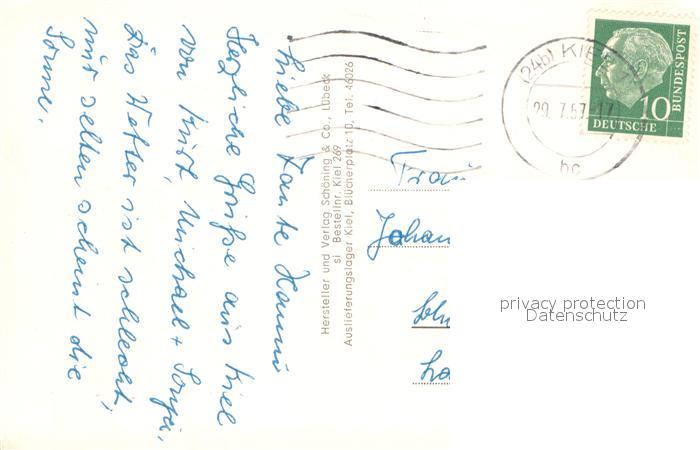 Liebe Tante Hanni
Herzliche Grüße aus Kiel
von Kurt, Michael + Sonja.
Das Wetter ist schlecht,
nur selten scheint die
Sonne.
Hersteller und Verlag Schöning & Co., Lübeck
si Bestellnr. Kiel 269
Auslieferungslager Kiel, Blücherplatz 10, Tel. 46026
Frau
Johan
(24b) KIEL 1
29. 7.57-17
bc
10
DEUTSCHE
BUNDESPOST
privacy protection
Datenschutz